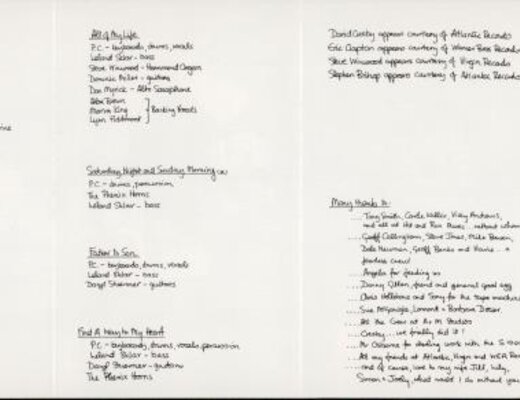 All of My Life
P.C. - keyboards, drums, vocals
Leland Sklar - bass
Steve Winwood - Hammond Organ
Dominic Miller - guitars
Don Myrick - Alto Saxophone
Alex Brown
Marva King
Lynn Fiddmont
Backing Vocals
Saturday Night and Sunday Morning
P.C. - drums, percussion
The Phenix Horns
Leland Sklar - bass
Father To Son
P.C. - keyboards, drums, vocals
Leland Sklar - bass
Daryl Stuermer - guitars
Find A Way to My Heart
P.C. - keyboards, drums, vocals, percussion
Leland Sklar - bass
Daryl Stuermer - guitars
The Phenix Horns
David Crosby appears courtesy of Atlantic Records
Eric Clapton appears courtesy of Warner Bros Records
Steve Winwood appears courtesy of Virgin Records
Stephen Bishop appears courtesy of Atlantic Records
Many thanks to
....Tony Smith, Carole Willis, Vicky Andrews,
and all at Hit and Run Music... without whom
....Geoff Callingham, Steve Jones, Mike Bowen,
Dale Newman, Geoff Banks and ... a
fearless crew!
....Angela for feeding us
....Danny Gillen, friend and general good egg
....Chris Hillstone and Sony for the tape machines
....Sue McGonagle, Lamont + Barbara Dozier
....All the Crew at A+M Studios
....Crosby... we finally did it!
....Mr Osborne for starting work with the
....All my friends at Atlantic, Virgin and WEA
....and of course, love to my wife Jill, Lily,
Simon + Joely, what would I do without you